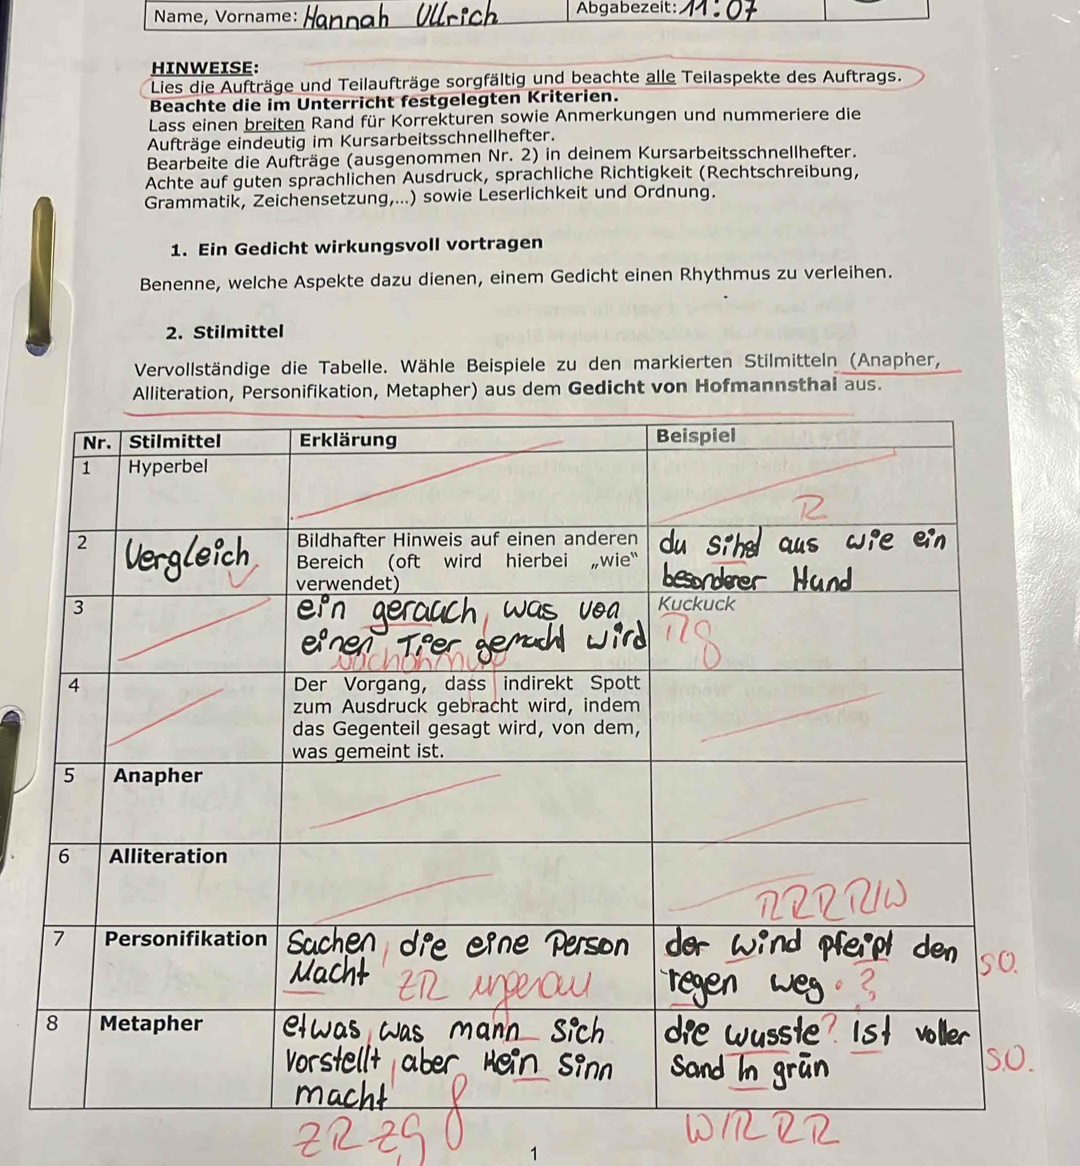 Name, Vorname: Hannah Ullrich Abgabezeit: 11:07
HINWEISE:
Lies die Aufträge und Teilaufträge sorgfältig und beachte alle Teilaspekte des Auftrags.
Beachte die im Unterricht festgelegten Kriterien.
Lass einen breiten Rand für Korrekturen sowie Anmerkungen und nummeriere die
Aufträge eindeutig im Kursarbeitsschnellhefter.
Bearbeite die Aufträge (ausgenommen Nr. 2) in deinem Kursarbeitsschnellhefter.
Achte auf guten sprachlichen Ausdruck, sprachliche Richtigkeit (Rechtschreibung,
Grammatik, Zeichensetzung,...) sowie Leserlichkeit und Ordnung.
1. Ein Gedicht wirkungsvoll vortragen
Benenne, welche Aspekte dazu dienen, einem Gedicht einen Rhythmus zu verleihen.
2. Stilmittel
Vervollständige die Tabelle. Wähle Beispiele zu den markierten Stilmitteln (Anapher,
Alliteration, Personifikation, Metapher) aus dem Gedicht von Hofmannsthal aus.
Nr. Stilmittel Erklärung Beispiel
1 Hyperbel
R
2 Vergleich
Bildhafter Hinweis auf einen anderen
Bereich (oft wird hierbei „wie“
verwendet)
du sihd aus wie ein
besonderer Hund
3
ein gerauch, was von
einen Tier gemacht wird
Nachahmung
Kuckuck
4
Der Vorgang, dass indirekt Spott
zum Ausdruck gebracht wird, indem
das Gegenteil gesagt wird, von dem,
was gemeint ist.
5 Anapher
6 Alliteration
RRRR/W
7 Personifikation
Sachen, die eine Person
Macht ZR ungenau
der wind pfeipt den
regen weg. ?
s.o.
8 Metapher
etwas, was mann sich
vorstellt, aber kein sinn
macht
die wusste? ist voller
Sand in grün
s.o.
ZR ZG
W/R R R
1